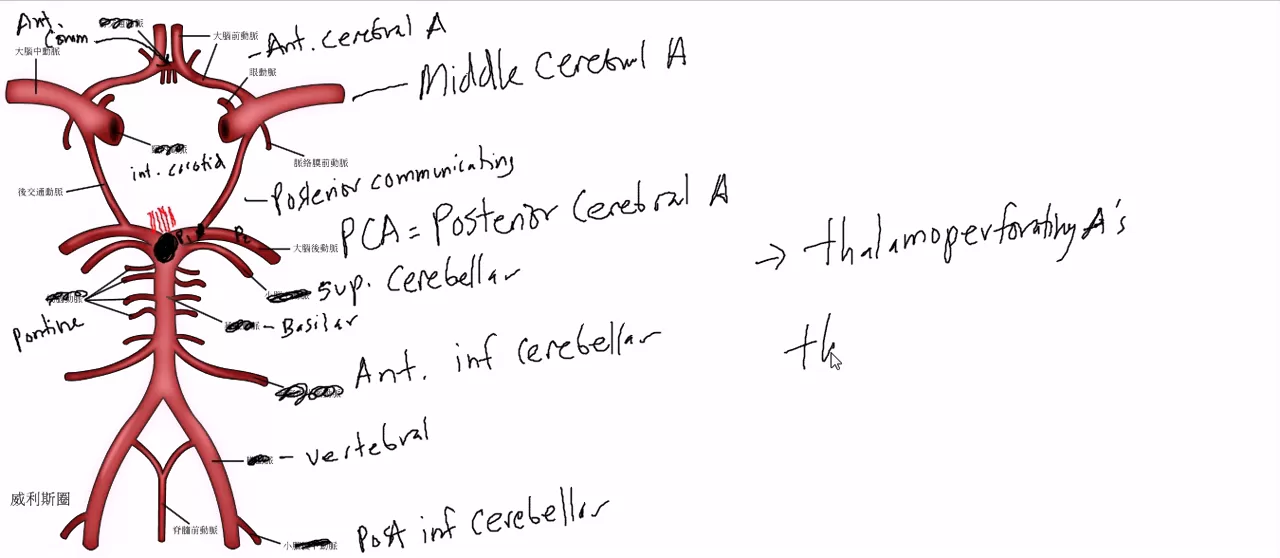 Ant.
Comm
大腦中動脈
大腦前動脈
- Ant. cerebral A
眼動脈
Middle Cerebral A
int. carotid
脈絡膜前動脈
後交通動脈
Posterior communicating
P1
P2
PCA = Posterior Cerebral A
大腦後動脈
→ thalamoperforating A's
Sup. Cerebellar
Pontine
- Basilar
th
Ant. inf cerebellar
- vertebral
威利斯圈
脊髓前動脈
Post inf cerebellar